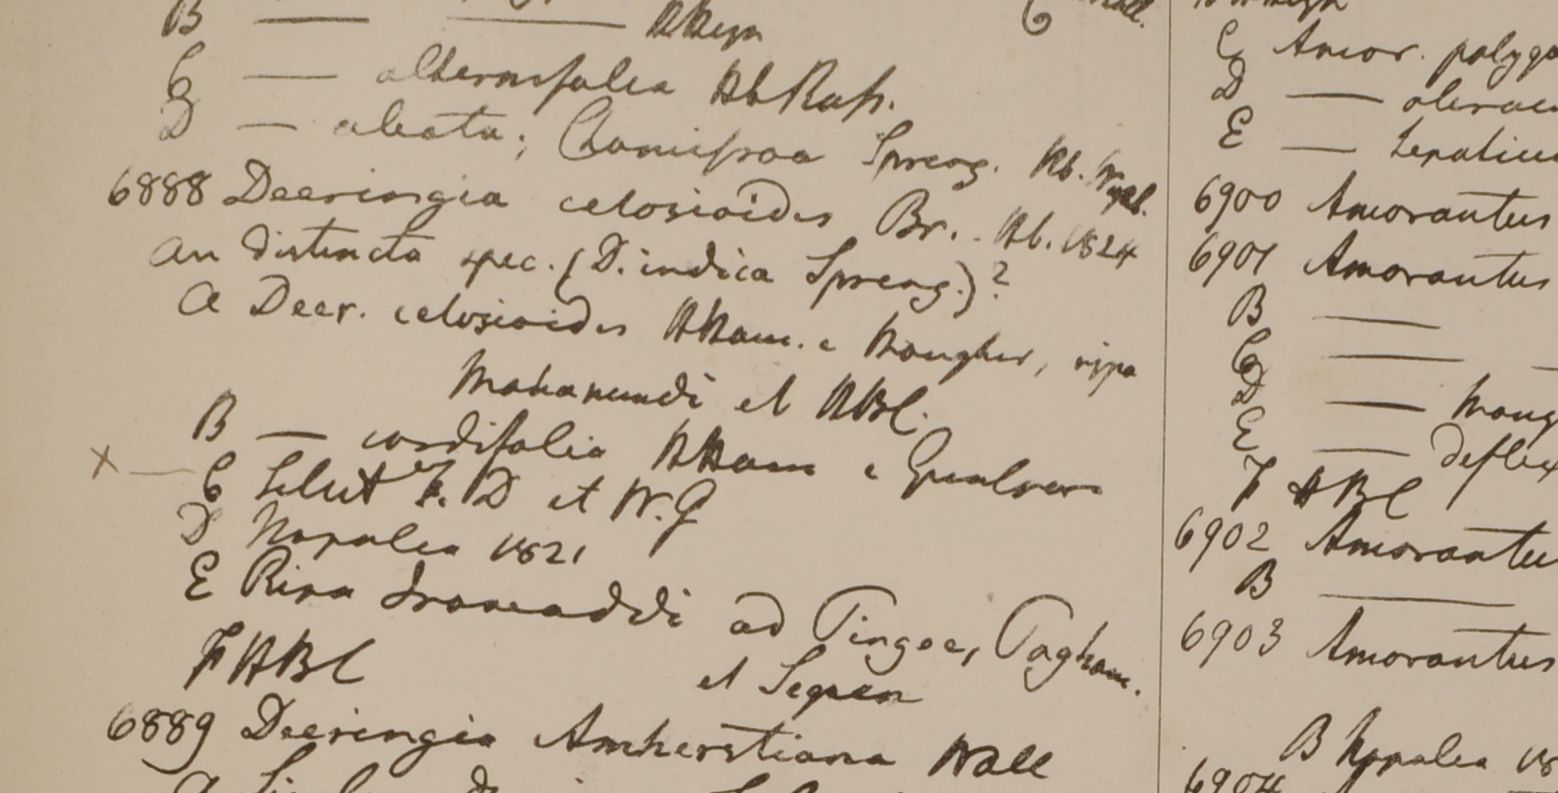 B — — HHeyn
C — alternifolia Hb Roth.
D — alata; Chamissoa Spreng. Hb. Wight.
6888 Deeringia celosioides Br. Hb. 1824
an distincta spec. (D. indica Spreng.)?
a Deer. celosioides HHam. e Monghir, ripa
Mahanundi et HBC.
B — cordifolia HHam e Gualpara
x — C Silhet F. D et W. G
D Napalia 1821
E Ripa Irawaddi ad Pingee, Paghan.
et Segaen
F HBC
6889 Deeringia Amherstiana Wall
Amor. polyga
D — olerac
E —
6900 Amorantus
6901 Amorantus
B —
C —
D — Mong
E — deflex
F HBC
6902 Amorantu
B —
6903 Amorantus
B Napalia 18
6904